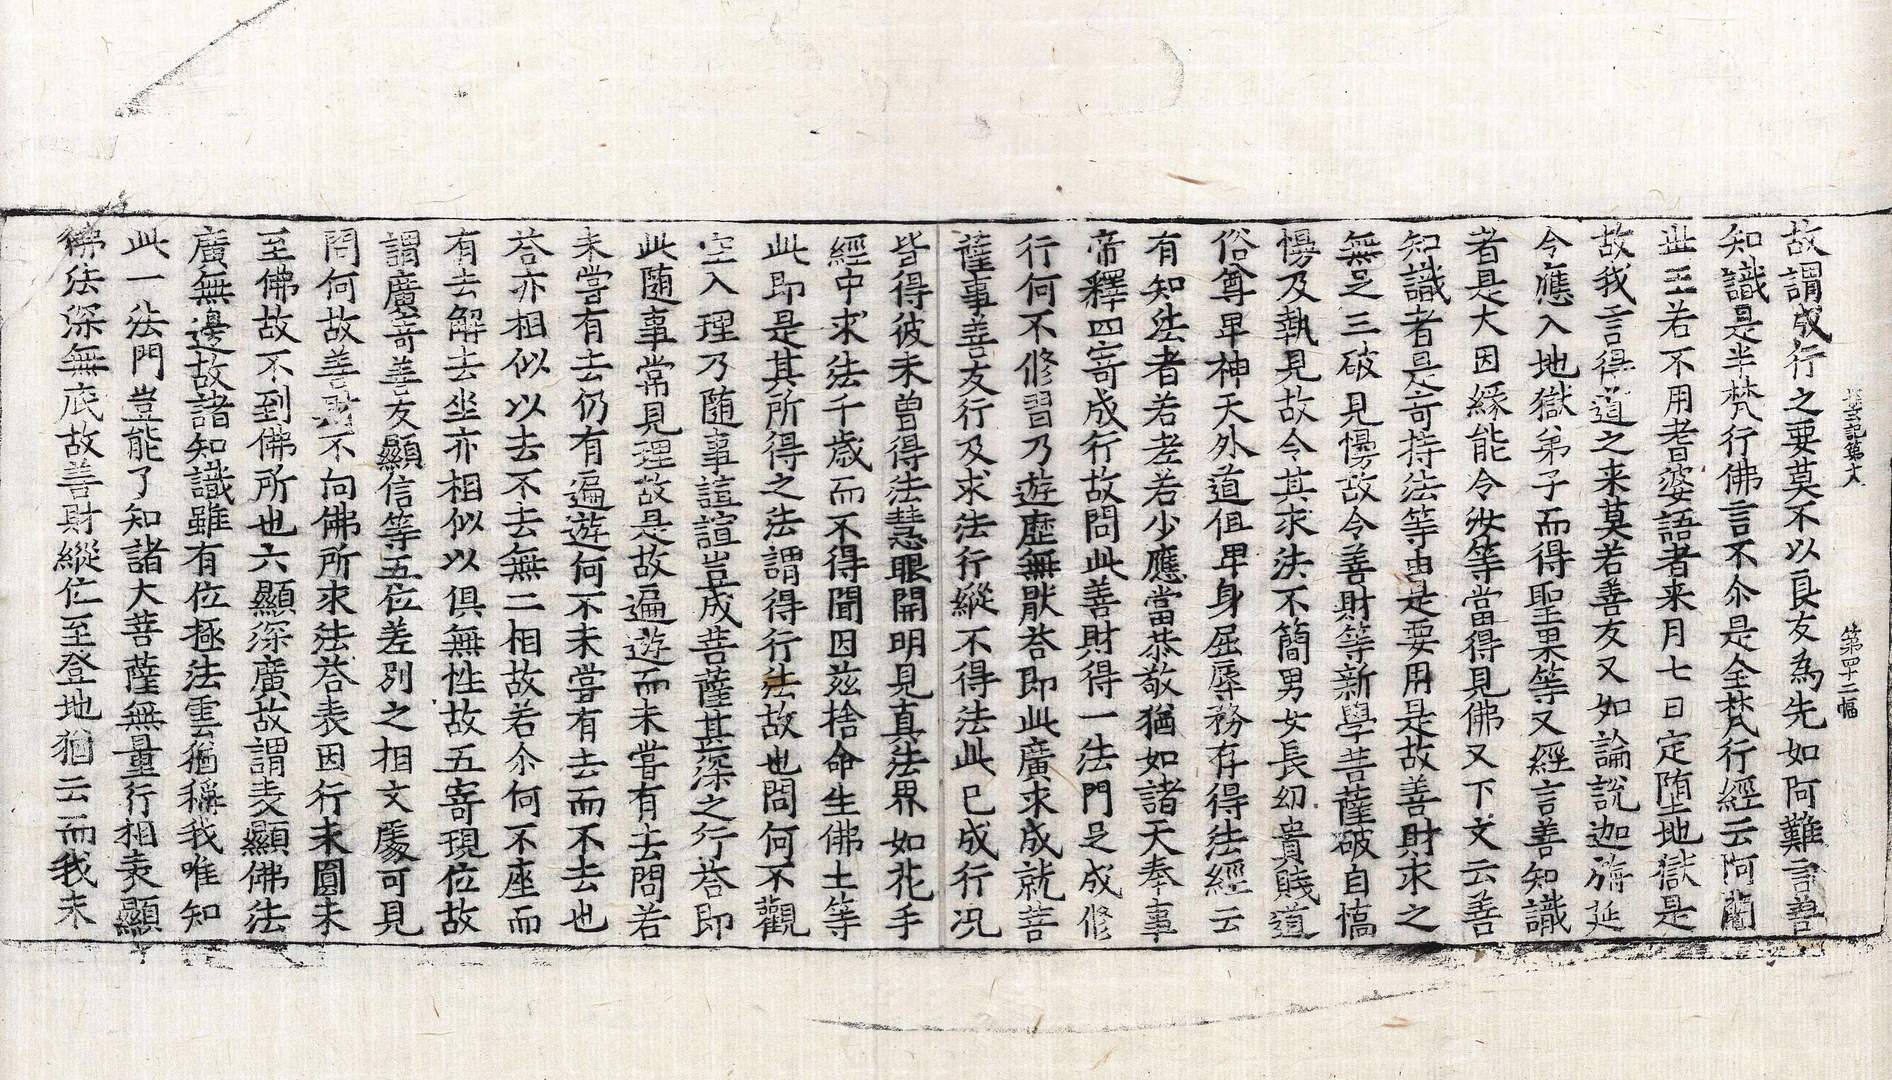 故謂成行之要莫不以良友為先如阿難言善
知識是半梵行佛言不尒是全梵行經云阿闍
世王若不用耆婆語者来月七日定墮地獄是
故我言得道之来莫若善友又如論說迦旃延
令應入地獄弟子而得聖果等又經言善知識
者是大因緣能令汝等當得見佛又下文云善
知識者是奇持法等由是要用是故善財求之
無足三破見慢故令善財等新學菩薩破自憍
慢及執見故令其求法不簡男女長幼貴賤道
俗尊卑神天外道但卑身屈辱務存得法經云
有知法者若老若少應當恭敬猶如諸天奉事
帝釋四寄成行故問此善財得一法門足成修
行何不修習乃遊歷無猒荅即此廣求成就菩
薩事善友行及求法行縱不得法此已成行况
皆得彼未曾得法慧眼開明見真法界如花手
經中求法千歲而不得聞因茲捨命生佛土等
此即是其所得之法謂得行法故也問何不觀
空入理乃随事諠諠豈成菩薩甚深之行荅即
此随事常見理故是故遍遊而未嘗有去問若
未嘗有去仍有遍遊何不未嘗有去而不去也
荅亦相似以去不去無二相故若尒何不座而
有去解去坐亦相似以俱無性故五寄現位故
謂廣寄善友顯信等五位差別之相文處可見
問何故善財不向佛所求法荅表因行未圓未
至佛故不到佛所也六顯深廣故謂表顯佛法
廣無邊故諸知識雖有位極法雲猶稱我唯知
此一法門豈能了知諸大菩薩無量行相表顯
佛法深無底故善財縱位至登地猶云而我未
第四十二幅